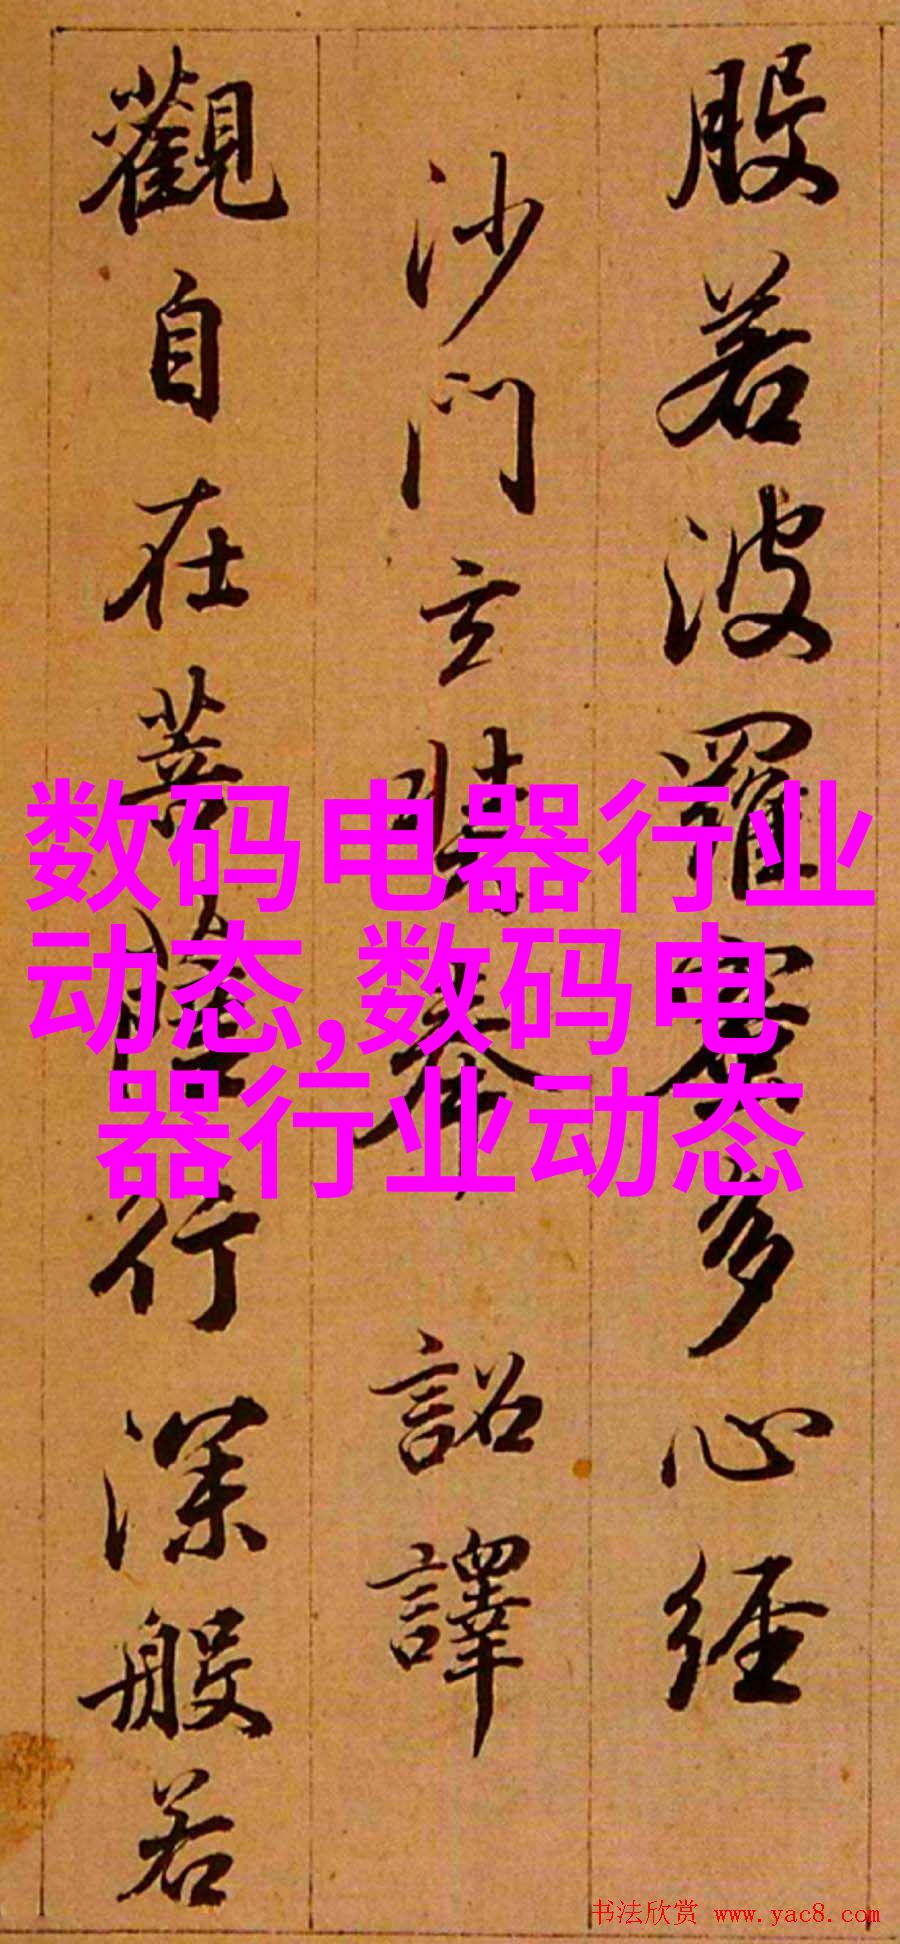 般若波羅蜜多心経
沙門玄奘奉 詔譯
觀自在菩薩行深般若
数码电器行业
动态,数码电
器行业动态
书法欣赏 www.yac8.com